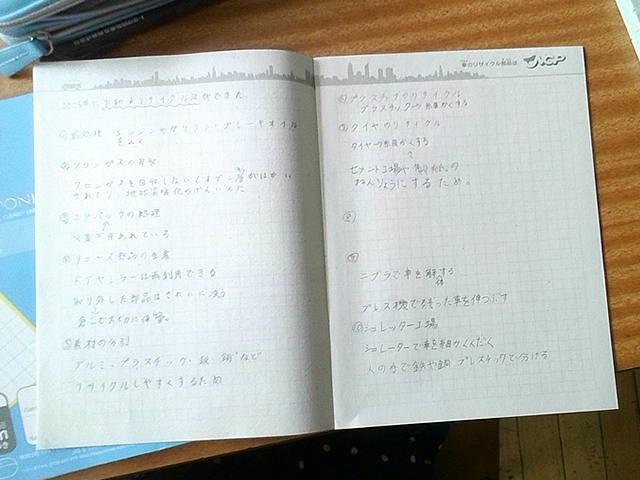 車のリサイクル部品は NGP
2005年に自動車リサイクル法ができた。
①前処理 エンジンやガソリン・ブレーキオイル
をぬく
②フロンガスの回収
フロンガスを回収しないとオゾン層がはかい
されて 地球温暖化のげんいんに
③エアバックの処理
火薬が使われている
④リユース部品の生産
ドアやミラーは再利用できる
取り外した部品はきれいに洗う
倉こで大切に保管。
⑤素材の分別
アルミ・プラスチック・鉄・銅など
リサイクルしやすくするため
⑥プラスチックのリサイクル
プラスチックを細かくする
⑦タイヤのリサイクル
タイヤを細かくする
セメント工場や製紙の
ねんりょうにするため。
⑧
⑨
ニブラで車を解体する
プレス機で残った車を押つぶす
⑩シュレッダー工場
シュレーターで車を細かくくだく
人の手で鉄や銅 プラスチックで分ける